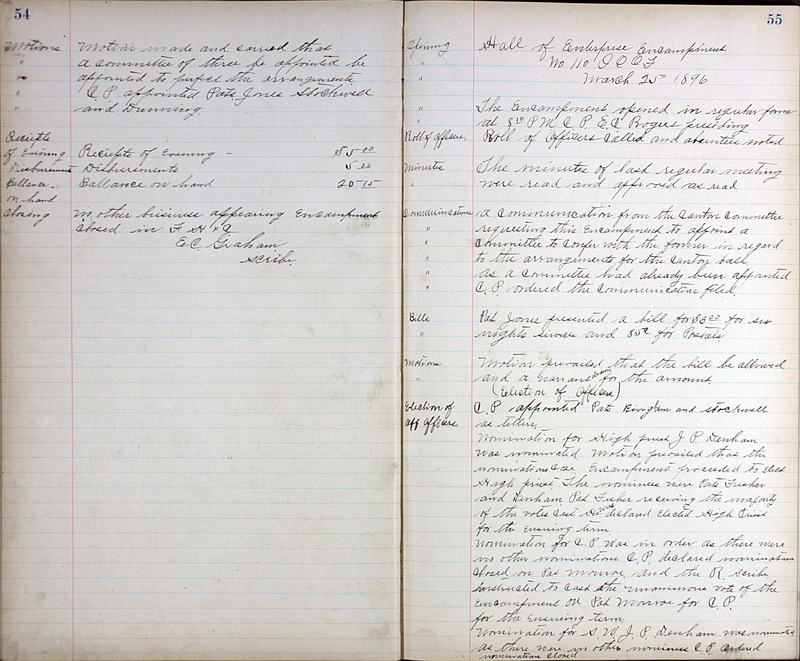 54
Motions Motion made and carried that
" a committee of three be appointed be
" appointed to perfect the arrangements
" C. P. appointed Pats Jones Stockwell
" and Dunning.
Reciepts
of Evening Reciepts of Evening — $5 00
Disbursments Disbursments 5 00
Ballance Ballance on hand 20 15
on hand
Closing no other bisiness appearing Encampment
closed in F H & C
E. C. Graham
Scribe.
55
Opening Hall of Enterprise Encampment
" No 110 I O O F
" March 25th 1896
" The Encampment opened in regular form
" at 8 10 P. M. C. P. E. C. Bogue presiding
Roll of officers Roll of Officers Called and absentees noted
Minutes The minutes of last regular meeting
" were read and approved as read
Communications a Communication from the Canton Committee
" requesting this Encampment to appoint a
" Committee to Confer with the former in regard
" to the arrangements for the Canton ball
" as a Committee had already been appointed
" C. P. ordered the Communication filed.
Bills Pat Jones presented a bill for $3 00 for six
" nights service and 85c for Postals
Motions Motion prevailed that the bill be allowed
" and a warrant drawn for the amount.
(Election of Officers)
Election of C. P appointed Pats Bingham and Stockwell
off officers as tellers.
Nomination for High priest J. P. Denham
was nominated Motion prevailed that the
nominations close Encampment proceeded to Elect
High priest. The nominees were Pats Fisher
and Denham Pat Fisher receiving the majority
of the votes cast declared Elected High Priest
for the Ensuing term
Nomination for C P was in order as there were
no other nominations C. P. declared nominations
Closed on Pat Monroe and the R. Scribe
instructed to Cast the unanimous vote of the
Encampment on Pat Monroe for C. P.
for the Ensuing term.
Nomination for S. W. J. P. Denham was nominated
as there were no other nominees C. P. ordered
nominations closed